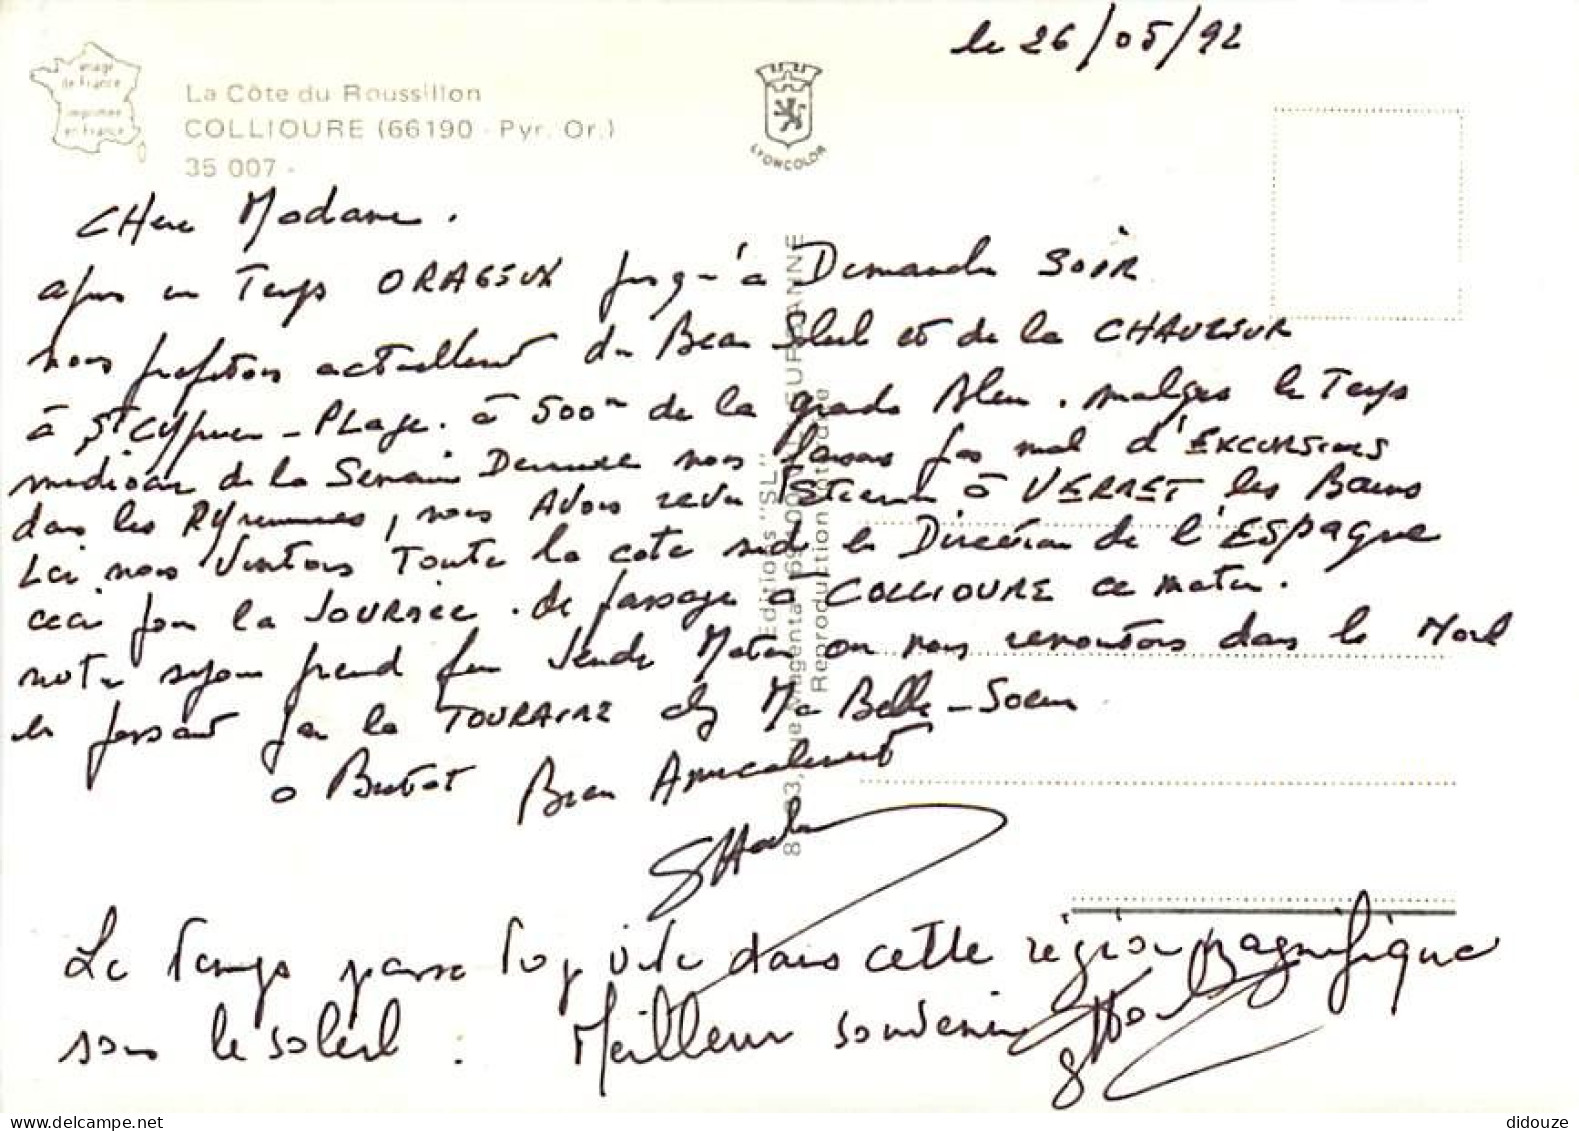 le 26/05/92
image
de France
imprimée
en France
La Côte du Roussillon
COLLIOURE (66190 - Pyr. Or.)
35 007 -
LYONCOLOR
CHere Madame.
apres un Temps ORAGEUX jusqu'à Dimanche SOIR
nous profitons actuellement du Beau Soleil et de la CHALEUR
à St Cyprien - PLage. à 500m de la grande Bleue. malgré le Temps
mediocre de la Semaine Derniere nous faisons pas mal d'EXCURSIONS
dans les Pyrennees, nous Avons revu à VERNET les Bains
Ici nous Visitons Toute la cote sud en Direction de l'ESPAGNE
ceci pour la JOURNEE. de passage à COLLIOURE ce matin.
notre sejour prend fin Vendr. Matin ou nous remontons dans le Nord
en passant par la TOURAINE chez Ma Belle-Soeur
a Bientot Bien Amicalement
Le temps passe trop vite dans cette région magnifique
sous le soleil. Meilleur souvenir
Editions "SL"
Reproduction interdite
didouze